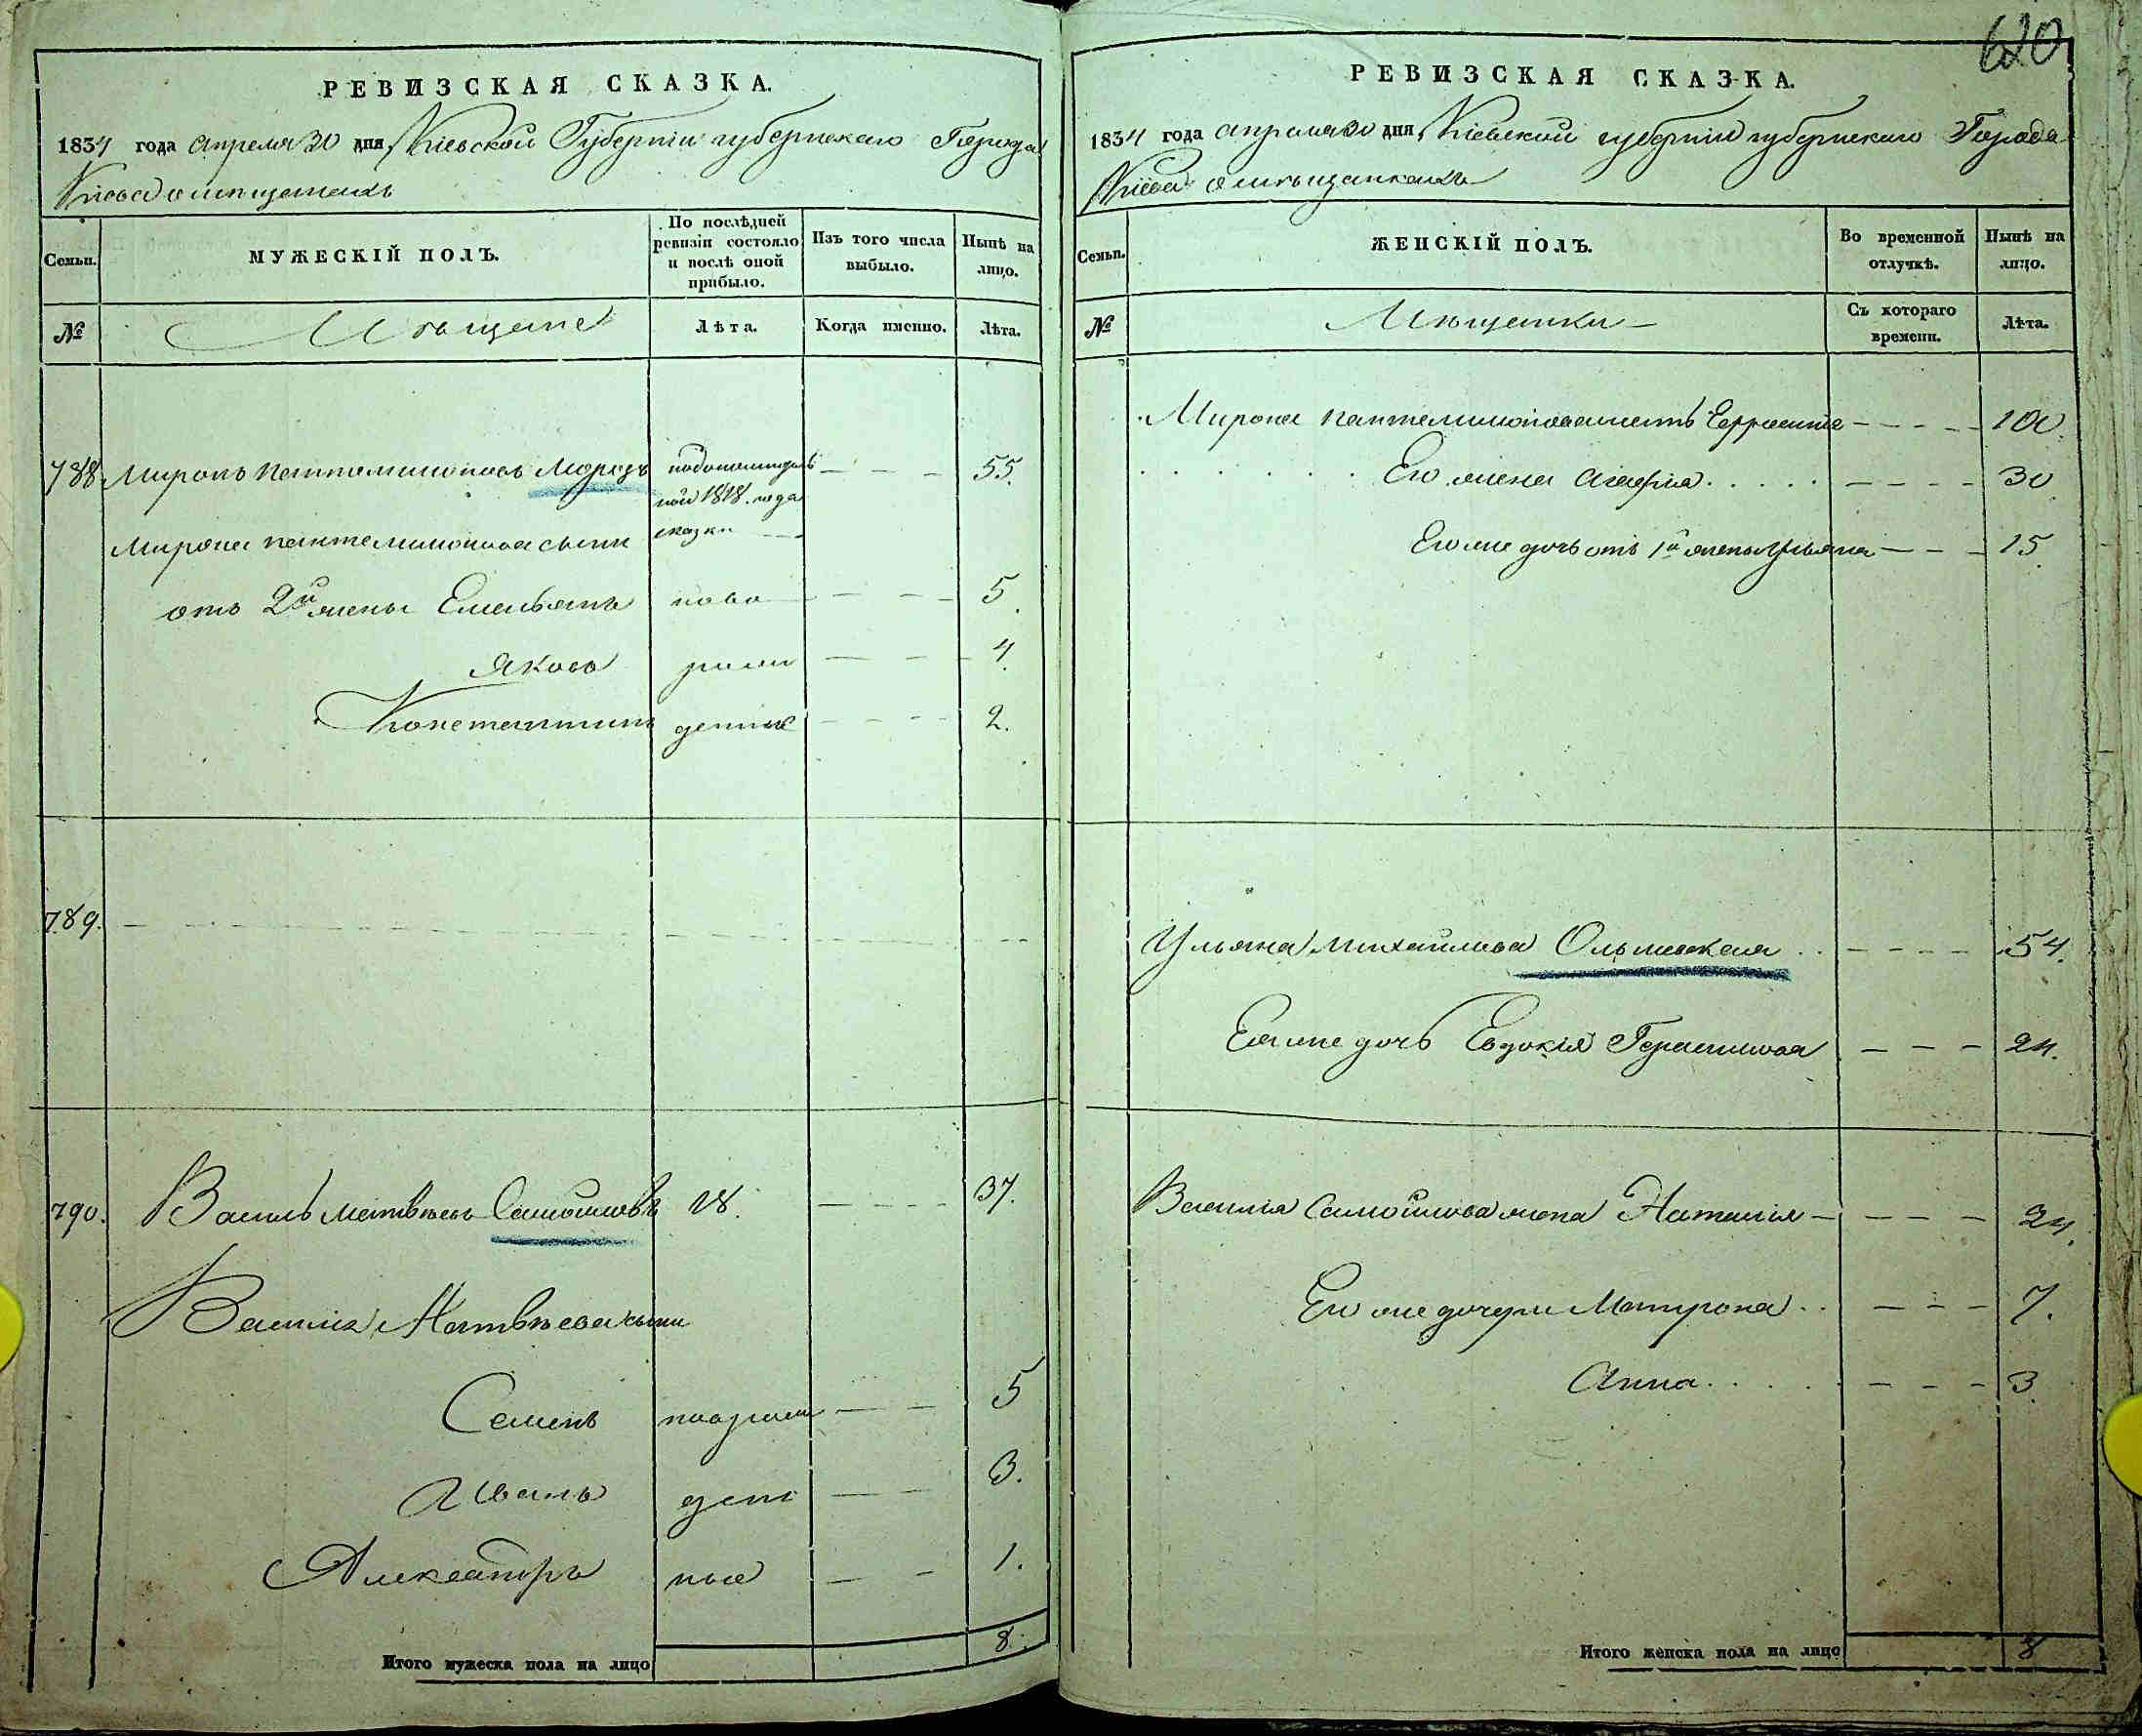 620
РЕВИЗСКАЯ СКАЗКА.
1834 года апреля 30 дня Кіевской Губерніи губернскаго Города
Кіева о мѣщанахъ
Семьи.
МУЖЕСКІЙ ПОЛЪ.
По послѣдней ревизіи состояло и послѣ оной прибыло.
Изъ того числа выбыло.
Нынѣ на лицо.
№
Мѣщане
Лѣта.
Когда именно.
Лѣта.
788 Миронъ Пантелимоновъ Морозъ 55.
1818. года
сказки
Мирона Пантелимонова сыни
отъ 2й жены Емельянъ ново 5.
Яковъ рожи 4.
Константинъ денные 2.
789.
790. Василь Матвѣевъ Самойловъ 18. 37.
Василія Матвѣева сыни
Семенъ новорож 5
Иванъ ден 3.
Александръ ные 1.
Итого мужеска пола на лицо 8.
РЕВИЗСКАЯ СКАЗКА.
1834 года апреля 30 дня Кіевской губерніи губернскаго Города
Кіева о мѣщанкахъ
Семьи.
ЖЕНСКІЙ ПОЛЪ.
Во временной отлучкѣ.
Нынѣ на лицо.
№
Мѣщанки
Съ котораго времени.
Лѣта.
Мирона Пантелимонова мать 100.
Его жена Агафія 30
Его же дочь отъ 1й жены Ульяна 15
Ульяна Михайлова Ольшевская 54.
Ея же дочь Евдокія Герасимова 24.
Василія Самойлова жена Наталія 24.
Его же дочери Матрона 7.
Анна 3
Итого женска пола на лицо 8